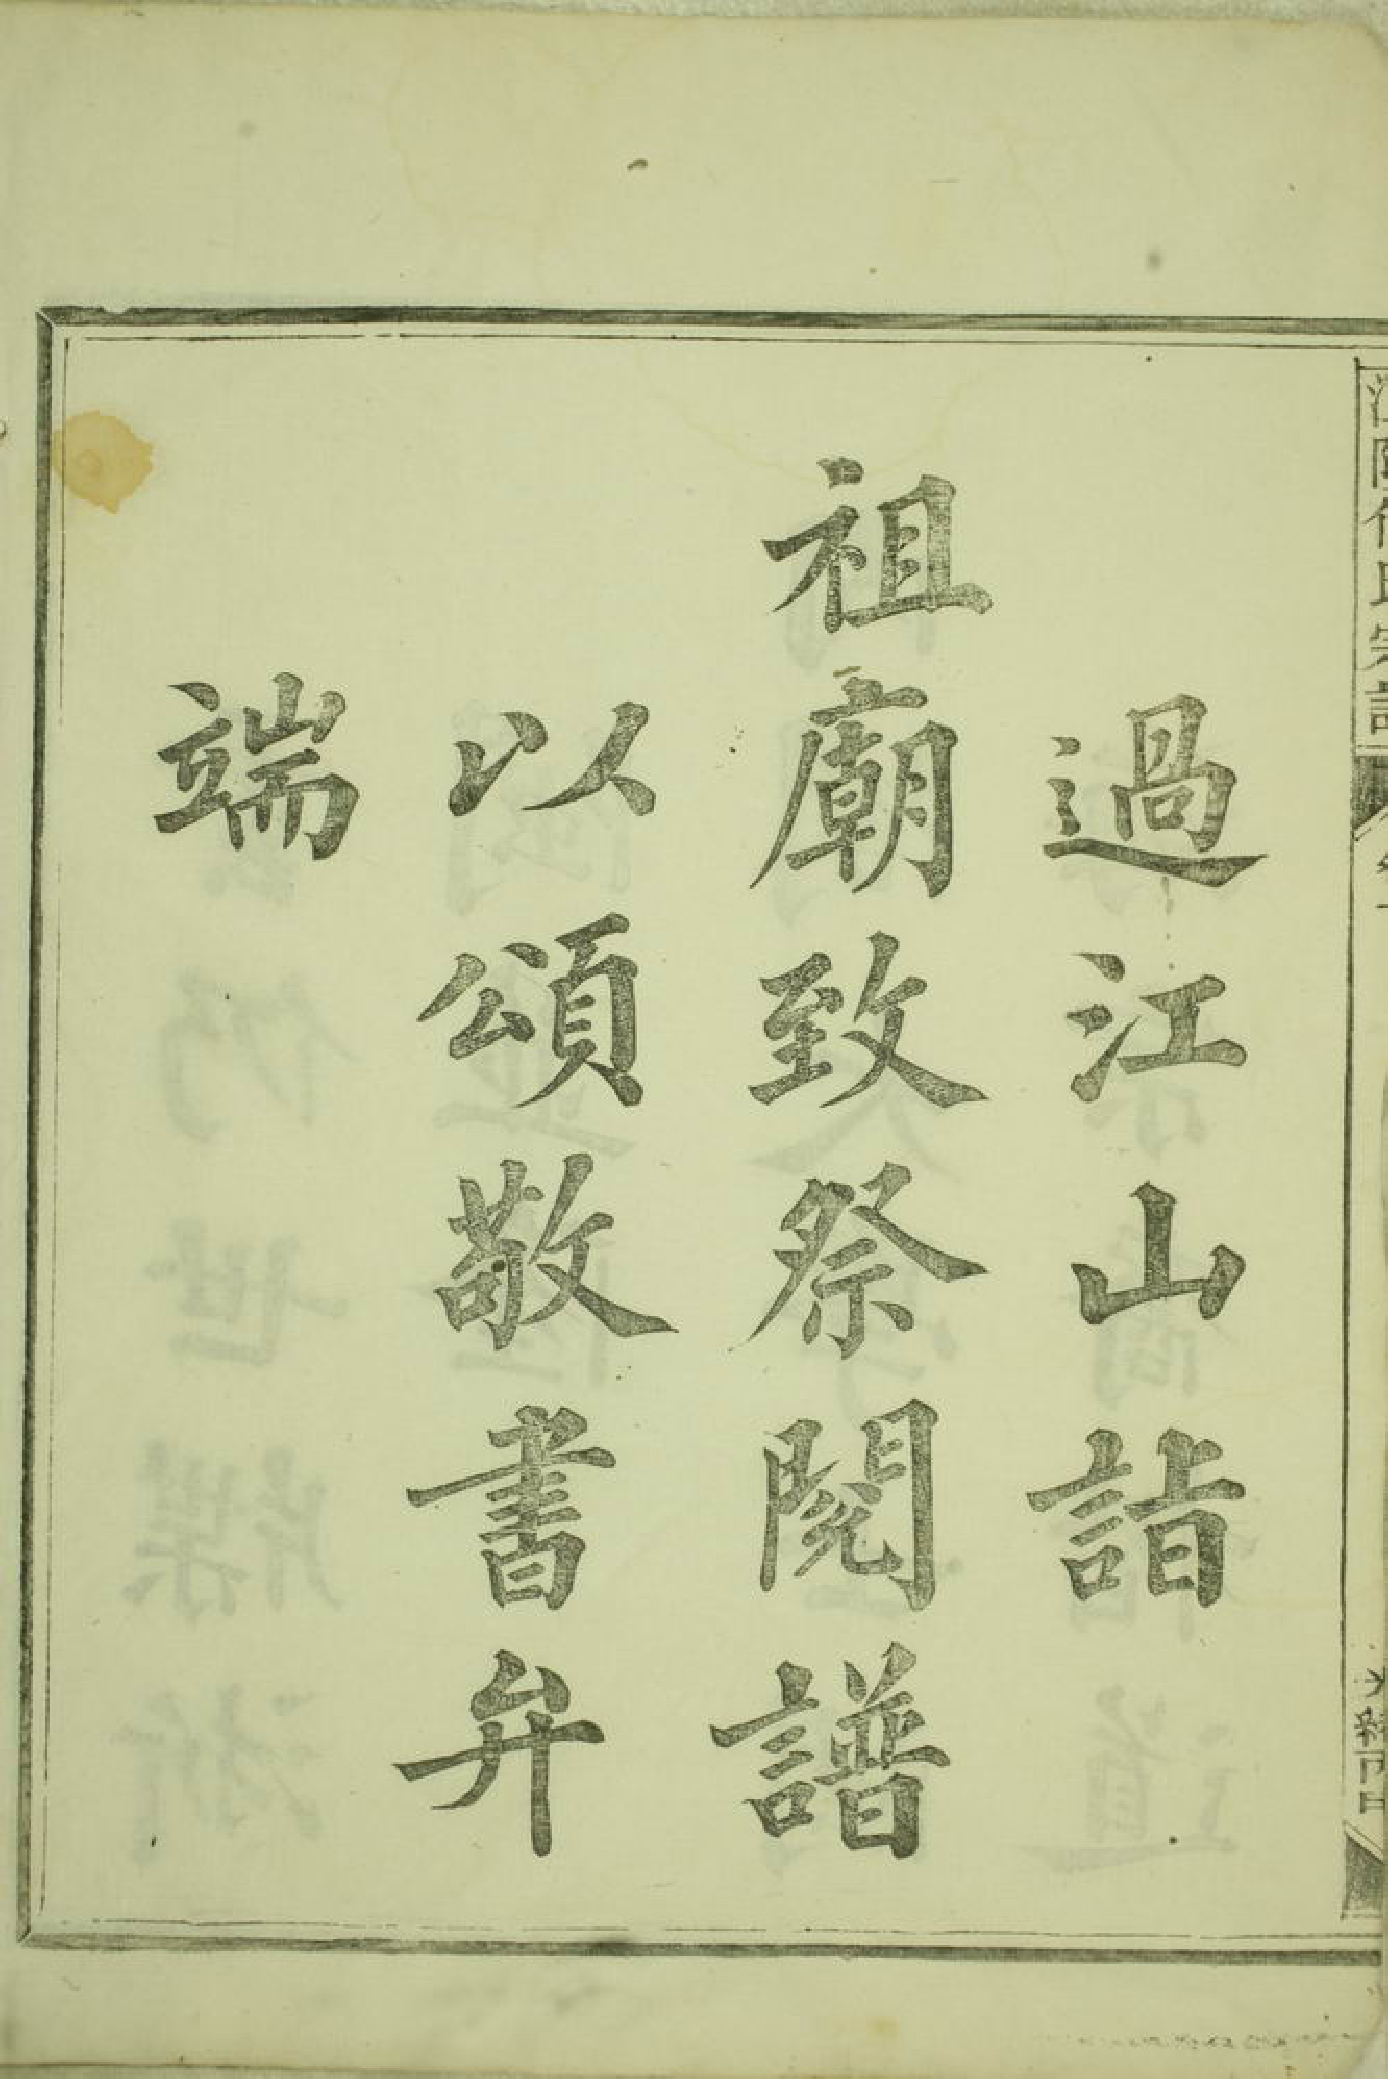 過江山詣
祖廟致祭閱譜
以頌敬書弁
端